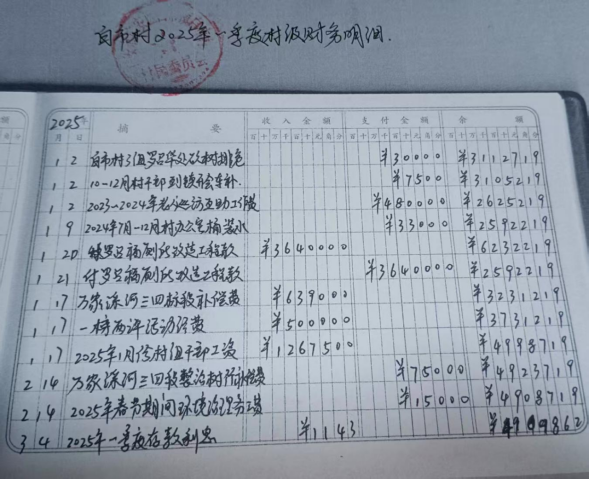 白市村2025年一季度村级财务明细.
村民委员会
2025年 摘要 收入金额 支付金额 余额
月 日 百十万千百十元角分 百十万千百十元角分 百十万千百十元角分
1 2 白市村3组罗 处砍树排危 ¥30000 ¥3112719
1 2 10-12月村干部到镇 会车补. ¥7500 ¥3105219
1 2 2023-2024年 河互助工 费 ¥480000 ¥2625219
1 9 2024年7月-12月村办公室桶装水 ¥33000 ¥2592219
1 20 罗 福厕所改造工程款 ¥3640000 ¥6232219
1 21 付罗 福厕所改造工程款 ¥3640000 ¥2592219
1 17 万家 河三四 段补偿费 ¥639000 ¥3231219
1 17 一榜两评活动经费 ¥500000 ¥3731219
1 17 2025年1月 村组干部工资 ¥1267500 ¥4998719
2 14 万家 河三四段整治 补偿费 ¥75000 ¥4923719
2 14 2025年春节期间环境治理务工费 ¥15000 ¥4908719
3 4 2025年一季度存款利息 ¥1143 ¥4909862